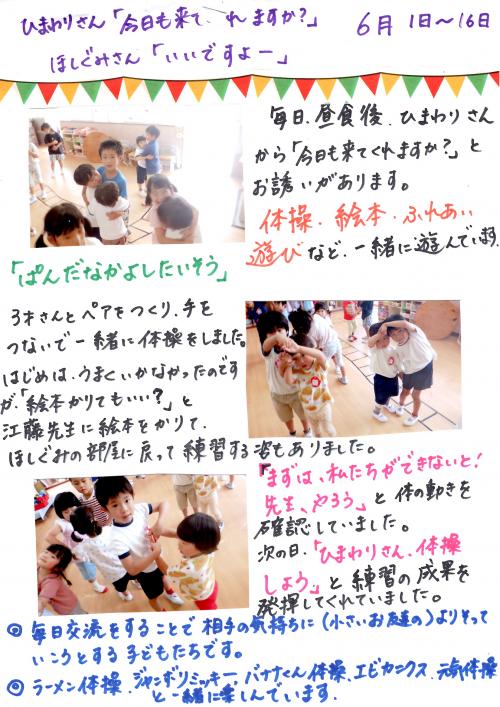 ひまわりさん「今日も来てくれますか?」
6月 1日～16日
ほしぐみさん「いいですよー」
毎日、昼食後、ひまわりさん
から「今日も来てくれますか?」と
お誘いがあります。
体操・絵本・ふれあい
遊びなど、一緒に遊んでいます。
「ぱんだなかよしたいそう」
3才さんとペアをつくり、手を
つないで一緒に体操をしました。
はじめは、うまくいかなかったのです
が、「絵本かりてもいい?」と
江藤先生に絵本をかりて、
ほしぐみの部屋に戻って練習する姿もありました。
「まずは、私たちができないと!
先生、やろう」と体の動きを
確認していました。
次の日、「ひまわりさん、体操
しよう」と練習の成果を
発揮してくれていました。
◎毎日交流をすることで相手の気持ちに(小さいお友達の)よりそって
いこうとする子どもたちです。
◎ラーメン体操、ジャンボリミッキー、バナナくん体操、エビカニクス、元気体操
と一緒に楽しんでいます。